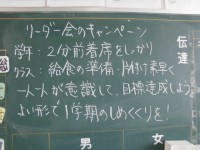 リーダー会のキャンペーン
学年：2分前着席をしっかり
クラス：給食の準備・片付け素早く
一人一人が意識して、目標達成しよう
よい形で1学期のしめくくりを！
伝達
男
女